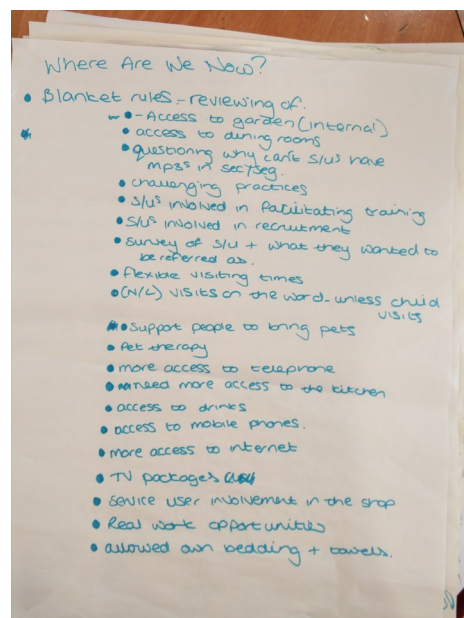 Where Are We Now?
• Blanket rules - reviewing of.
• - Access to garden (internal)
• access to dining rooms
• questioning why can't S/U's have
mp3s in sec/seg.
• challenging practices
• S/U's involved in facilitating training
• S/U's involved in recruitment
• Survey of S/U + what they wanted to
be referred as.
• flexible visiting times
• (N/C) visits on the ward - unless child
visits
• Support people to bring pets
• Pet therapy
• more access to telephone
• need more access to the kitchen
• access to drinks
• access to mobile phones.
• more access to internet
• TV packages
• service user involvement in the shop
• Real work opportunities
• allowed own bedding + towels.